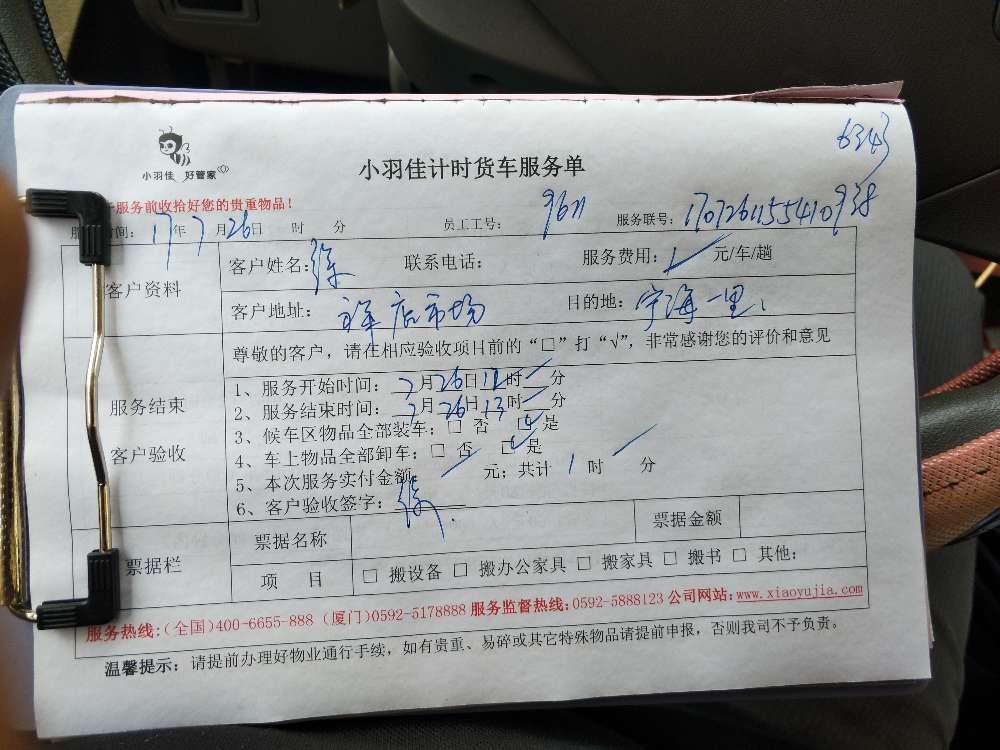 6343
小羽佳 好管家
小羽佳计时货车服务单
服务前收拾好您的贵重物品！
间： 17年 7月26日 时 分 员工工号： 9671 服务联号： 1707261155410938
客户资料
客户姓名：徐 联系电话： 服务费用： 元/车/趟
客户地址： 店市场 目的地： 宁海一里
服务结束
客户验收
尊敬的客户，请在相应验收项目前的“□”打“√”，非常感谢您的评价和意见
1、服务开始时间： 7月26日12时 分
2、服务结束时间： 7月26日13时 分
3、候车区物品全部装车：□ 否 □ 是
4、车上物品全部卸车：□ 否 □ 是
5、本次服务实付金额 元；共计 1 时 分
6、客户验收签字： 徐
票据栏
票据名称 票据金额
项 目 □ 搬设备 □ 搬办公家具 □ 搬家具 □ 搬书 □ 其他：
服务热线：（全国）400-6655-888（厦门）0592-5178888 服务监督热线：0592-5888123 公司网站：www.xiaoyujia.com
温馨提示：请提前办理好物业通行手续，如有贵重、易碎或其它特殊物品请提前申报，否则我司不予负责。